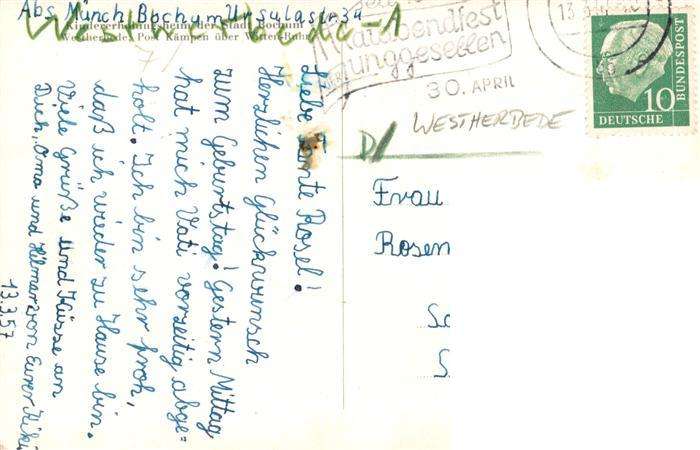 Abs. Münch, Bochum, Ursulastr. 34
Kindererholungsheim der Stadt Bochum
Westherbede, Post Kämpen über Witten-Ruhr
Liebe Tante Rosel!
Herzlichen Glückwunsch
zum Geburtstag! Gestern Mittag
hat mich Vati vorzeitig abge=
holt. Ich bin sehr froh,
daß ich wieder zu Hause bin.
Viele Grüße und Küsse an
Dich, Oma und Hilmar von Eurer Kiki
13.3.57
Maiabendfest
Junggesellen
30. APRIL
13
10
DEUTSCHE
BUNDESPOST
WESTHERBEDE
D
Frau
Rosen